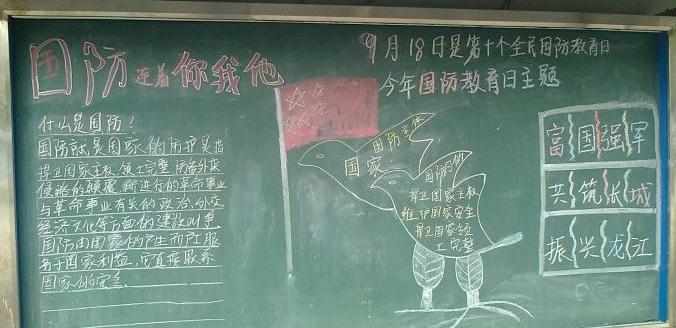 国防连着你我他
什么是国防！
国防就是国家的防护是指
捍卫国家主权、领土完整、防备外来
侵略的颠覆，所进行的军事事业
与军事事业有关的政治、外交
经济文化等方面的建设
国防由国家的产生而产生服
务于国家利益，它直接联系
国家的安全。
国家
国防主体
国防目的
捍卫国家主权
维护国家安全
捍卫国家领
土完整
9月18日是第十个全民国防教育日
今年国防教育日主题
富国强军
共筑长城
振兴龙江